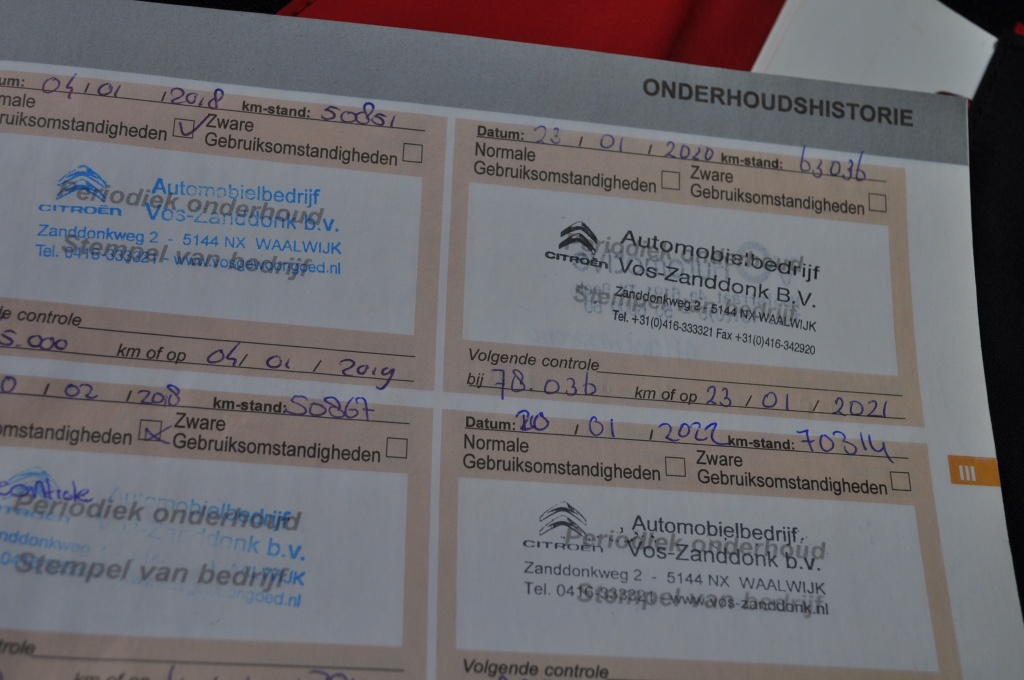 ONDERHOUDSHISTORIE
um: 04 / 01 / 2018 km-stand: 50851
male
ruiksomstandigheden Zware
Gebruiksomstandigheden
Periodiek onderhoud
Stempel van bedrijf
CITROËN
Automobielbedrijf
Vos-Zanddonk b.v.
Zanddonkweg 2 - 5144 NX WAALWIJK
Tel. 0416-333321 - www.vosgewoongoed.nl
de controle
5.000 km of op 04 / 01 / 2019
0 / 02 / 2018 km-stand: 50867
omstandigheden Zware
Gebruiksomstandigheden
controle
Periodiek onderhoud
Stempel van bedrijf
nddonkweg
ngoed.nl
trole
km of op
Datum: 23 / 01 / 2020 km-stand: 63036
Normale
Gebruiksomstandigheden Zware
Gebruiksomstandigheden
Periodiek onderhoud
Stempel van bedrijf
CITROËN
Automobielbedrijf
Vos-Zanddonk B.V.
Zanddonkweg 2 - 5144 NX WAALWIJK
Tel. +31(0)416-333321 Fax +31(0)416-342920
Volgende controle
bij 78.036 km of op 23 / 01 / 2021
Datum: 20 / 01 / 2022 km-stand: 70314
Normale
Gebruiksomstandigheden Zware
Gebruiksomstandigheden
Periodiek onderhoud
Stempel van bedrijf
CITROËN
Automobielbedrijf
Vos-Zanddonk b.v.
Zanddonkweg 2 - 5144 NX WAALWIJK
Tel. 0416-333321 - www.vos-zanddonk.nl
Volgende controle
III